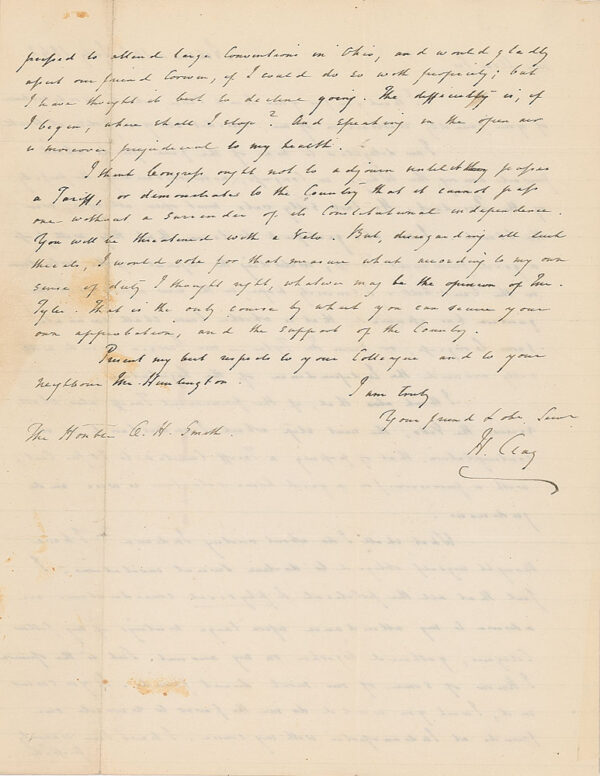 pressed to attend large Conventions in Ohio, and would gladly
assist our friend Corwin, if I could do so with propriety; but
I have thought it best to decline going. The difficulty is, if
I begin, where shall I stop? And speaking in the open air
is moreover prejudicial to my health.
I think Congress ought not to adjourn until it passes
a Tariff, or demonstrates to the Country that it cannot pass
one without a surrender of its Constitutional independence.
You will be threatened with a Veto. But, disregarding all such
threats, I would vote for that measure what according to my own
sense of duty I thought right, whatever may be the opinion of Mr.
Tyler. That is the only course by which you can secure your
own approbation, and the support of the Country.
Present my best respects to your Colleague and to your
neighbour Mr. Huntington.
I am truly
Your friend & obt. Serv.
The Honble. H. Smith.
H. Clay